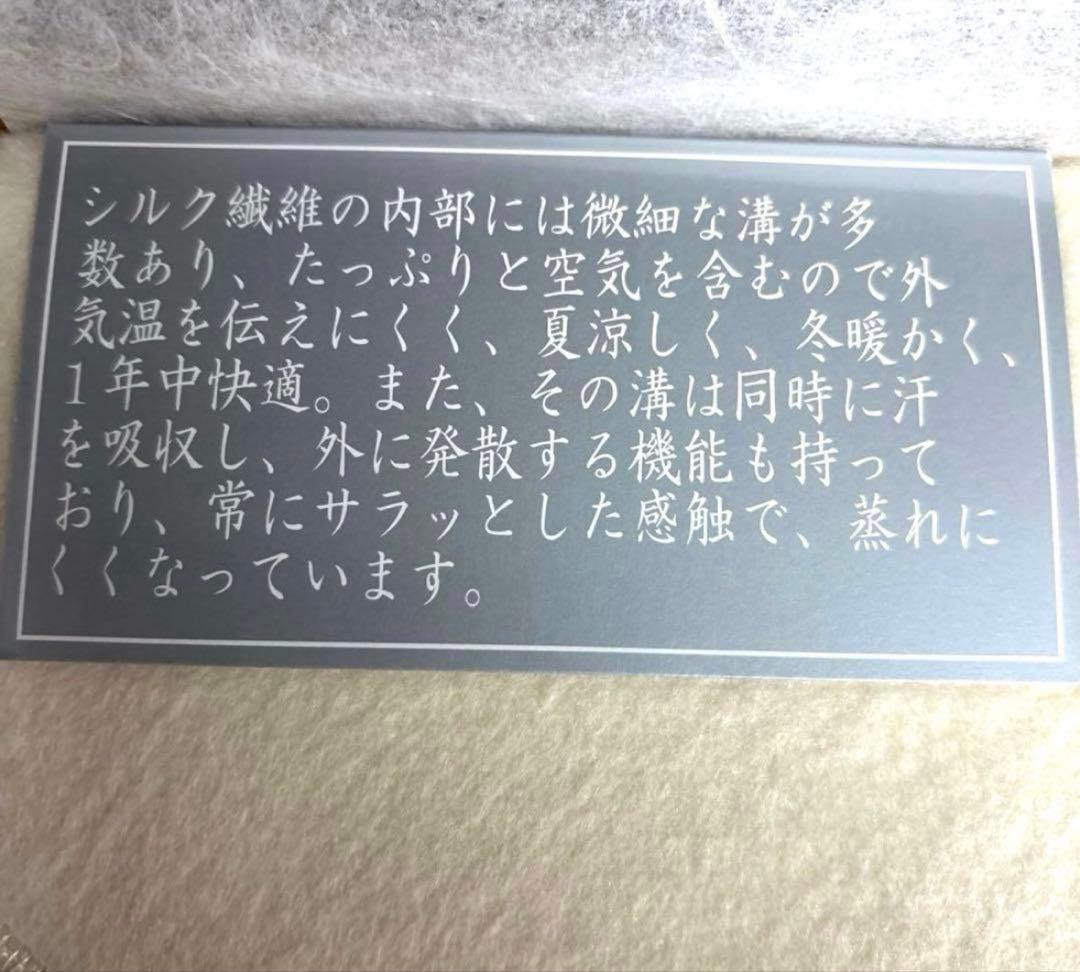 シルク繊維の内部には微細な溝が多
数あり、たっぷりと空気を含むので外
気温を伝えにくく、夏涼しく、冬暖かく、
1年中快適。また、その溝は同時に汗
を吸収し、外に発散する機能も持って
おり、常にサラッとした感触で、蒸れに
くくなっています。